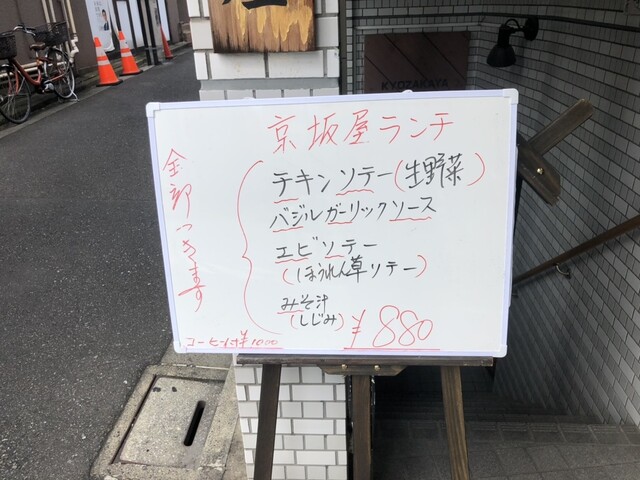 KYOZAKAYA
京坂屋ランチ
全部つきます
チキンソテー(生野菜)
バジルガーリックソース
エビソテー
(ほうれん草ソテー)
みそ汁
(しじみ)
¥880
コーヒー付¥1000